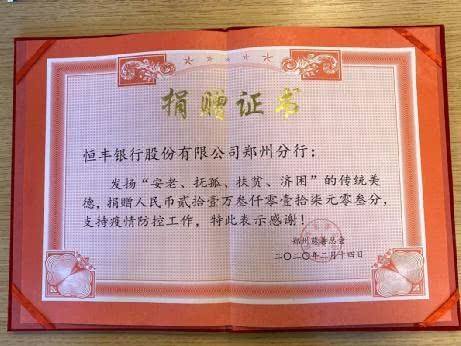 捐赠证书
恒丰银行股份有限公司郑州分行：
发扬“安老、抚孤、扶贫、济困”的传统美
德，捐赠人民币贰拾壹万叁仟零壹拾柒元零叁分，
支持疫情防控工作，特此表示感谢！
郑州慈善总会
二〇二〇年二月十四日